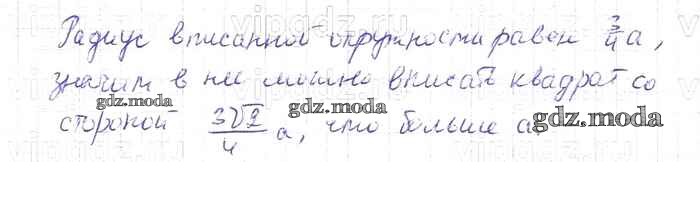 Радиус вписанной окружности равен 3/4 a,
значит в неё можно вписать квадрат со
стороной 3√2/4 a, что больше a.
vipgdz.com
gdz.moda
gdz.moda
gdz.moda